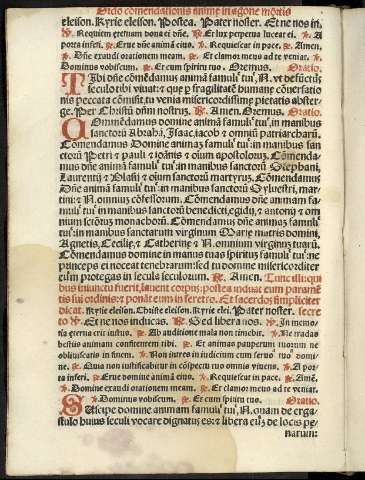 Ordo comendationis anime in agone mortis
eleison. Kyrie eleison. Postea. Pater noster. Et ne nos in.
℣. Requiem eternam dona ei dñe. ℟. Et lux perpetua luceat ei. ℣. A
porta inferi. ℟. Erue dñe animā eius. ℣. Requiescat in pace. ℟. Amen.
℣. Dñe exaudi orationem meam. ℟. Et clamor meus ad te veniat. ℣.
Dominus vobiscum. ℟. Et cum spiritu tuo. Oremus. Oratio.
TIbi dñe cōmēdamus animā famuli tui. N. vt defūctus
seculo tibi viuat: et que ꝑ fragilitatē humane cōuersatio
nis peccata cōmisit, tu venia misericordissime pietatis abster-
ge. Per Christū dñm nostrum. ℟. Amen. Oremus. Oratio.
COmmendamus Domine animaȝ famuli tui. in manibus
sanctorū Abrahā, Isaac, iacob et omniū patriarcharū.
Cōmendamus Domine animaȝ famuli tui. in manibus san
ctorū Petri et pauli et ioānis et oīum apostolorum. Cōmenda-
mus dñe animaȝ famuli tui. in manibus sanctorū Stephani,
Laurentij et blasij et oīum sanctorū martyrum. Cōmendamus
Dñe animā famuli tui. in manibus sanctorū Syluestri, mar-
tini: et N. omniuȝ cōfessorum. Cōmendamus dñe animam fa-
muli tui. in manibus sanctorū benedicti, egidij, et antonij et om
nium sctōrum monachorū. Cōmendamus dñe animaȝ famuli
tui. in manibus sanctarum virginum Marie matris domini,
Agnetis, Cecilie, et Catherine et N. omnium virginuȝ tuarū.
Cōmendamus domine in manus tuas spiritus famuli tui. ne
princeps ei noceat tenebrarum: sed tu domine misericorditer
eum protegas in secula seculorum. ℟. Amen. Tunc illi, qui-
bus iniunctu fuerit, lauent corpus: postea induāt eum paramē
tis sui ordinis: et ponāt eum in feretro. Et sacerdos simpliciter
dicat. Kyrie eleison. Christe eleison. Kyrie elei. Pater noster. secre
to ℣. Et ne nos inducas. ℟. Sed libera nos. ℣. In memo-
ria eterna erit iustus. ℟. Ab auditione mala non timebit. ℣. Ne tradas
bestiis animam confitentem tibi. ℟. Et animas pauperum tuorum ne
obliuiscaris in finem. ℣. Non intres in iudicium cum seruo tuo domi-
ne. ℟. Quia non iustificabitur in cōspectu tuo omnis viuens. ℣. A por-
ta inferi. ℟. Erue domine animā eius. ℣. Requiescat in pace. ℟. Amē.
℣. Domine exaudi orationem meam. ℟. Et clamor meus ad te veniat.
℣. Dominus vobiscum. ℟. Et cum spiritu tuo. Oratio.
SUscipe domine animam famuli tui. N. quam de erga-
stulo huius seculi vocare dignatus es: et libera eūȝ de locis pe-
narum: